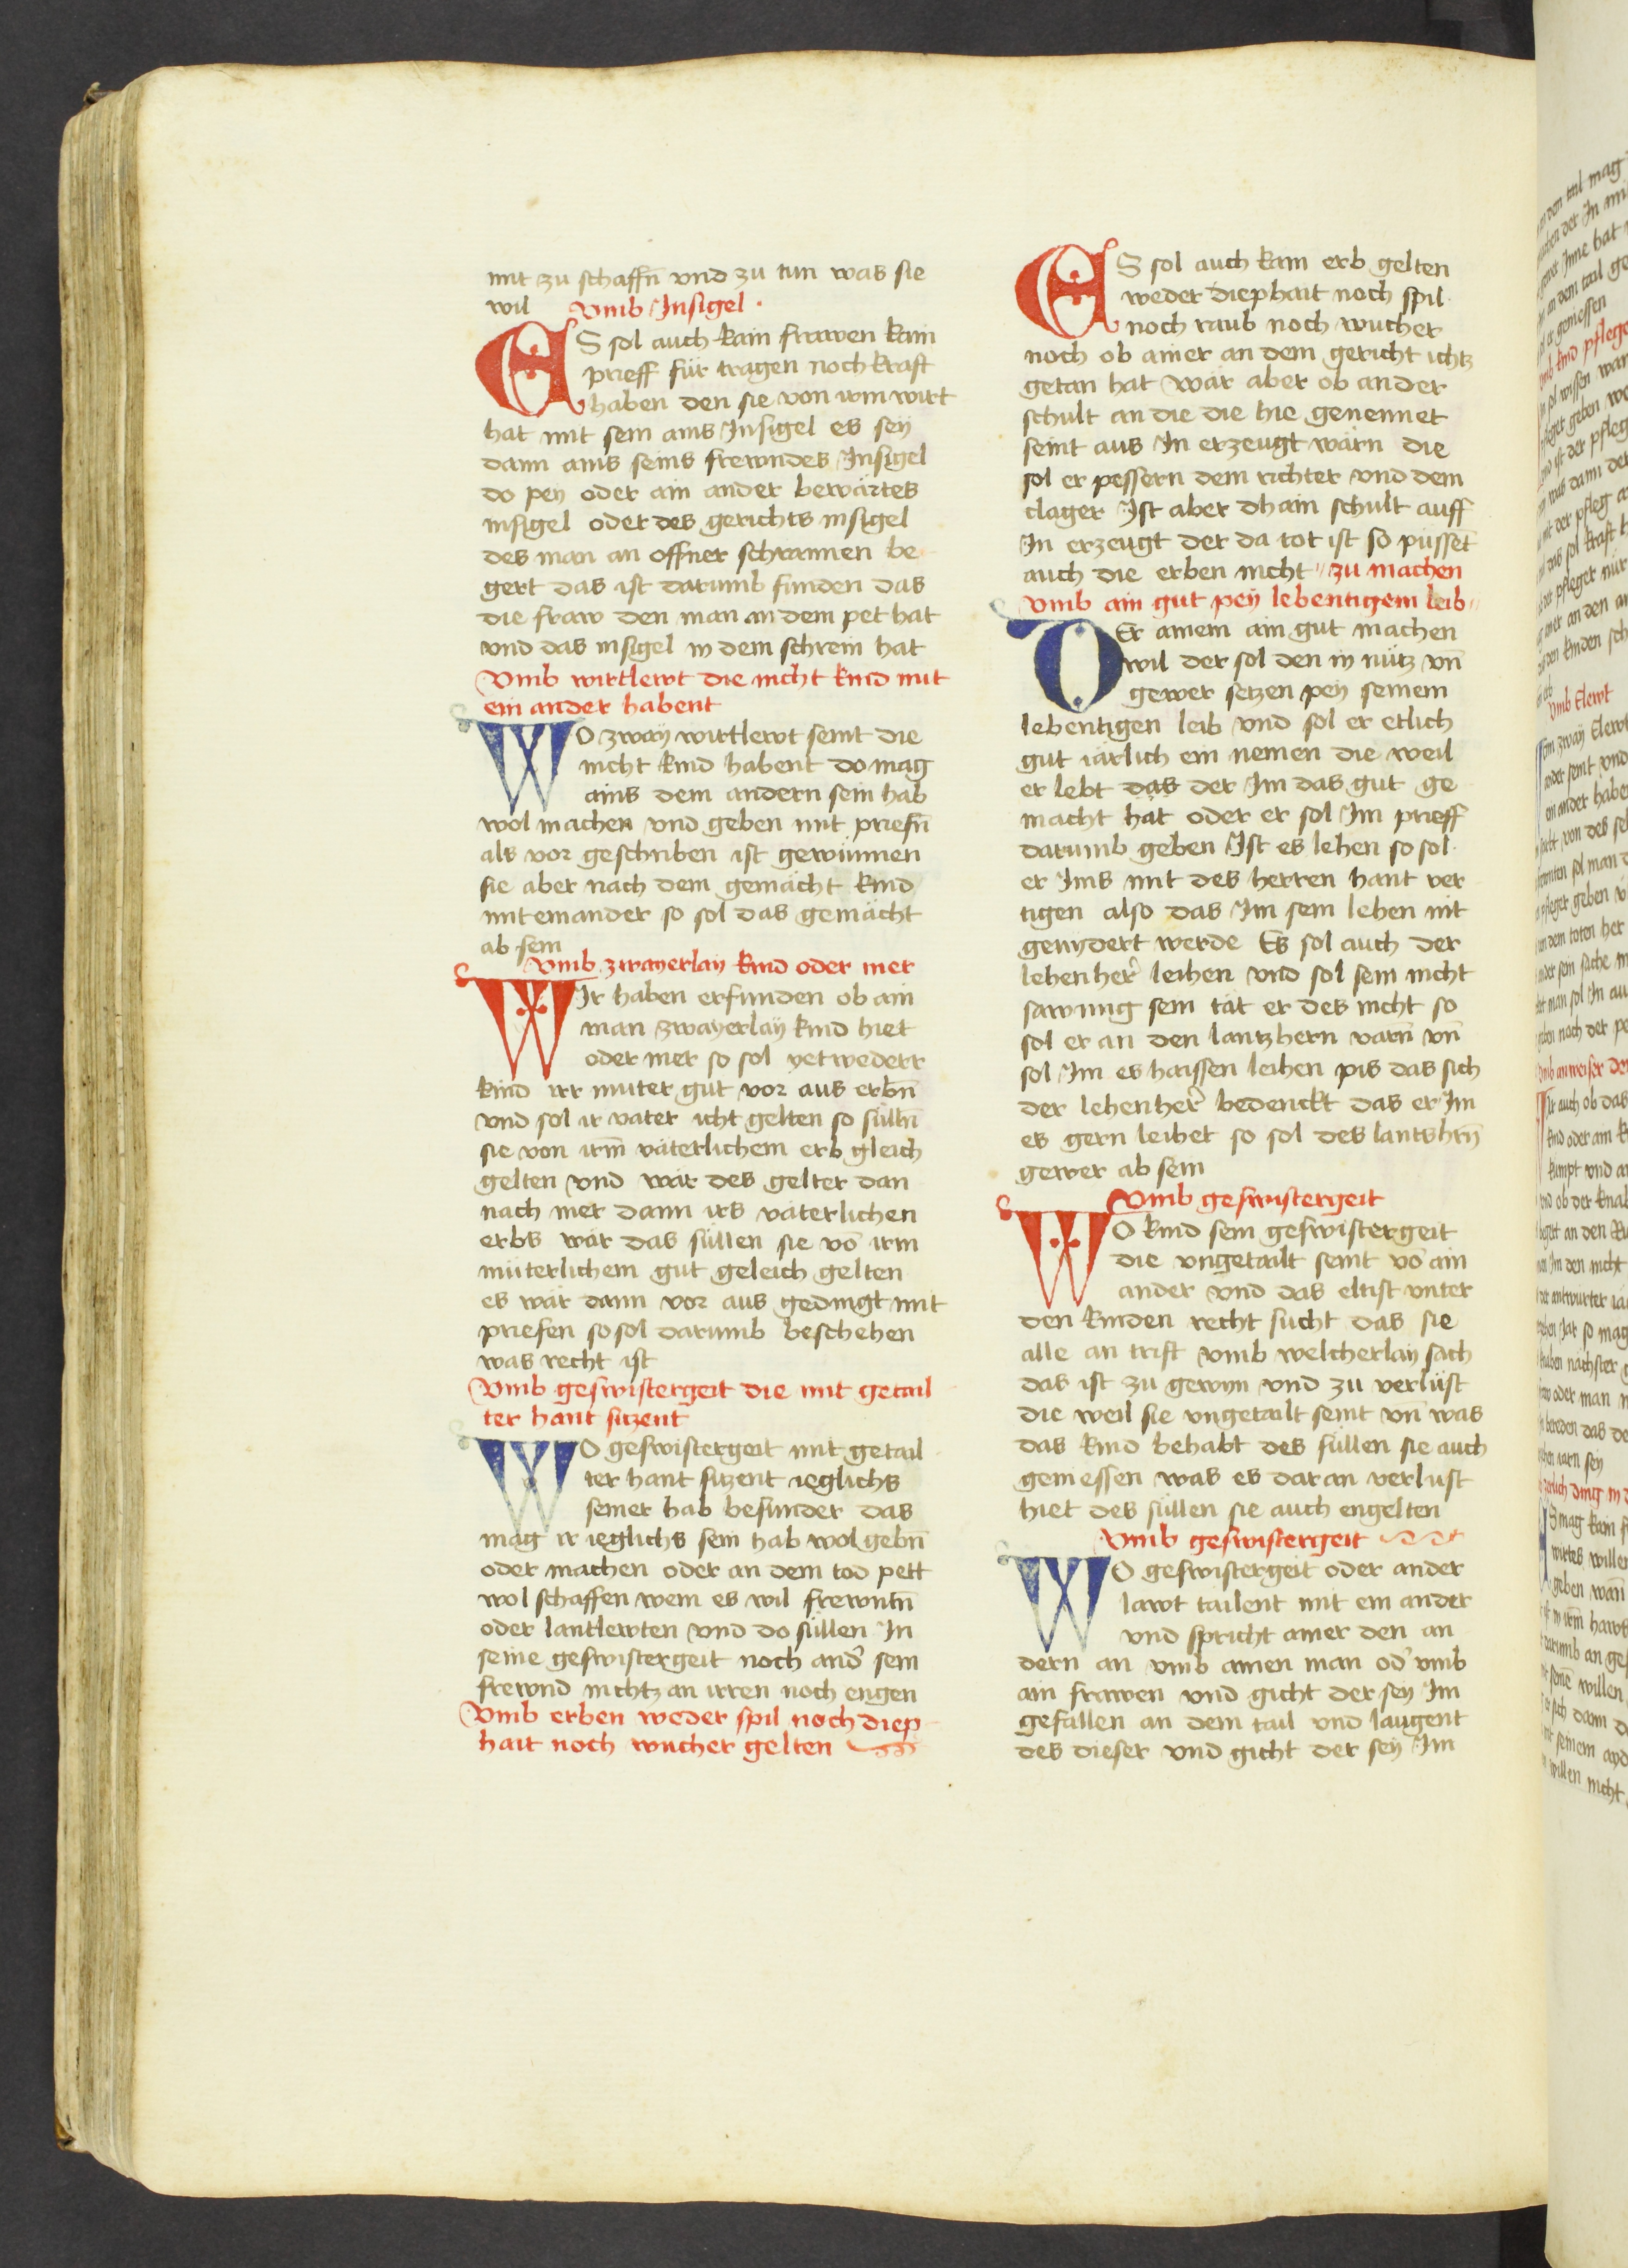 mit zu schaffn̄ vnd zu tun was sie
wil Vmb Insigel ·
ES sol auch kain frawen kain
prieff für tragen noch kraft
haben den sie von irm wirt
hat mit sein ains Insigel es seÿ
dann ains seins frewndes Insigel
do peÿ oder ain ander bewärtes
insigel oder des gerichts insigel
des man an offner schrannen be
gert das ist darumb funden das
die fraw den man an dem pet hat
vnd das insigel in dem schrein hat
Vmb wirtlewt die nicht kind mit
ein ander habent
WO zwaÿ wirtlewt seint die
nicht kind habent do mag
ains dem andern sein hab
wol machen vnd geben mit priefn̄
als vor geschriben ist gewinnen
sie aber nach dem gemächt kind
miteinander so sol das gemächt
ab sein
Vmb zwayerlay kind oder mer
WIr haben erfunden ob ain
man zwaÿerlaÿ kind hiet
oder mer so sol yetwederr
kind irr muter gut vor aus erbn̄
vnd sol ir vater icht gelten so sülln̄
sie von irm̄ väterlichem erb gleich
gelten vnd wär des gelter dan
nach mer dann irs väterlichen
erbs wär das süllen sie vō irm
müterlichem gut geleich gelten
es wär dann vor aus gedingt mit
priefen so sol darumb beschehen
was recht ist
Vmb geswistergeit die mit getail
ter hant sitzent
WO geswistergeit mit getail
ter hant sitzent ieglichs
seiner hab besunder das
mag ir ieglichs sein hab wol gebn̄
oder machen oder an dem tod pett
wol schaffen wem es wil frewntn̄
oder lantlewten vnd do süllen In
seine geswistergeit noch and̛ sein
frewnd nichtz an irren noch engen
Vmb erben weder spil noch diep
hait noch wucher gelten
ES sol auch kain erb gelten
weder diephait noch spil
noch raub noch wucher
noch ob ainer an dem gericht ichtz
getan hat wär aber ob ander
schult an die die hie genennet
seint aus In erzeugt wärn die
sol er pessern dem richter vnd dem
clager Ist aber dhain schult auff
In erzeugt der da tot ist so püssēt
auch die erben nicht zu machen
Vmb ain gut peÿ lebentigem leib
DEr ainem ain gut machen
wil der sol den in nütz vn̄
gewer setzen peÿ seinem
lebentigen leib vnd sol er etlich
gut iärlich ein nemen die weil
er lebt das der Im das gut ge
macht hat oder er sol Im prieff
darumb geben Ist es lehen so sol
er Ims mit des herren hant ver
tigen also das Im sein lehen nit
genydert werde Es sol auch der
lehenher̄ leihen vnd sol sein nicht
sawmig sein tät er des nicht so
sol er an den lantzhern varn̄ vn̄
sol Im es haissen leihen pis das sich
der lehenher̄ bedenckt das er Im
es gern leihet so sol des lantshrn̄
gewer ab sein
Vmb geswistergeit
WO kind sein geswistergeit
die vngetailt seint vō ain
ander vnd das eltist vnter
den kinden recht sucht das sie
alle an trift vmb welcherlay sach
das ist zu gewyn vnd zu verlust
die weil sie vngetailt seint vn̄ was
das kind behabt des süllen sie auch
geniessen was es dar an verlust
hiet des süllen sie auch engelten
Vmb geswistergeit
WO geswistergeit oder ander
lawt tailent mit ein ander
vnd spricht ainer den an
dern an vmb ainen man od̛ vmb
ain frawen vnd gicht der seÿ Im
gefallen an dem tail vnd laugent
des dieser vnd gicht der seÿ Im